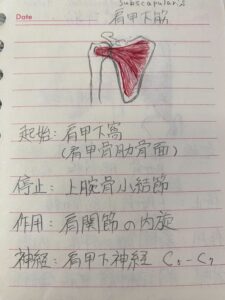 Subscapularis
Date 肩甲下筋
起始: 肩甲下窩
(肩甲骨肋骨面)
停止: 上腕骨小結節
作用: 肩関節の内旋
神経: 肩甲下神経 C5-C7